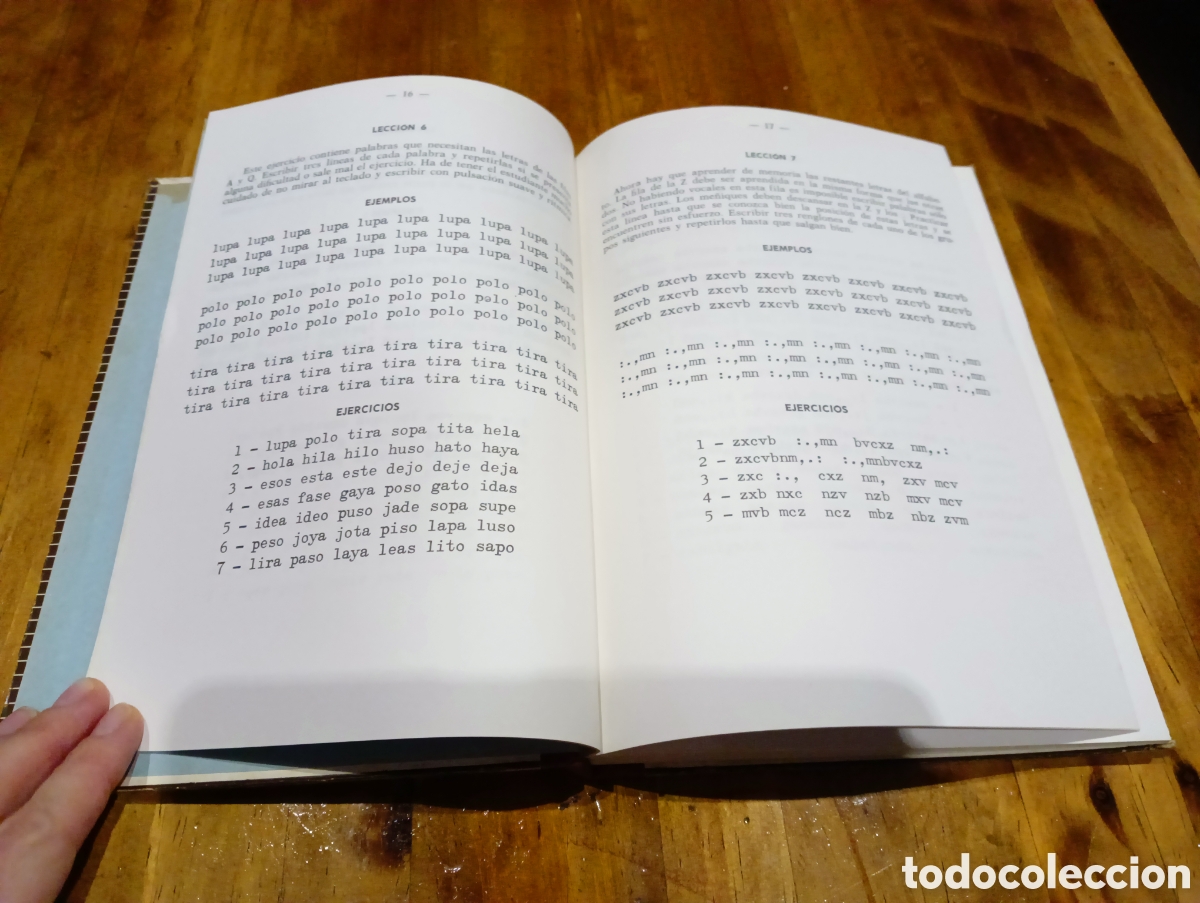 — 16 —
LECCION 6
Este ejercicio contiene palabras que necesitan las letras de las
A y Q. Escribir tres líneas de cada palabra y repetirlas si se
alguna dificultad o sale mal el ejercicio. Ha de tener el estudiante
cuidado de no mirar al teclado y escribir con pulsación suave y
EJEMPLOS
lupa lupa lupa lupa lupa lupa lupa lupa lupa lupa
lupa lupa lupa lupa lupa lupa lupa lupa lupa lupa
lupa lupa lupa lupa lupa lupa lupa lupa lupa lupa
polo polo polo polo polo polo polo polo polo polo
polo polo polo polo polo polo polo polo polo polo
polo polo polo polo polo polo polo polo polo polo
tira tira tira tira tira tira tira tira tira tira
tira tira tira tira tira tira tira tira tira tira
tira tira tira tira tira tira tira tira tira tira
EJERCICIOS
1 – lupa polo tira sopa tita hela
2 – hola hila hilo huso hato haya
3 – esos esta este dejo deje deja
4 – esas fase gaya poso gato idas
5 – idea ideo puso jade sopa supe
6 – peso joya jota piso lapa luso
7 – lira paso laya leas lito sapo
LECCION 7
Ahora hay que aprender de memoria las restantes letras del alfabe-
to. La fila de la Z debe ser aprendida en la misma forma que
dos. No habiendo vocales en esta fila es imposible escribir palabras sólo
con sus letras. Los meñiques deben descansar en la Z y los
esta línea hasta que se conozca bien la posición de estas letras y se
encuentren sin esfuerzo. Escribir tres renglones de cada uno de los gru-
pos siguientes y repetirlos hasta que salgan bien.
EJEMPLOS
zxcvb zxcvb zxcvb zxcvb zxcvb zxcvb zxcvb zxcvb
zxcvb zxcvb zxcvb zxcvb zxcvb zxcvb zxcvb zxcvb
zxcvb zxcvb zxcvb zxcvb zxcvb zxcvb zxcvb zxcvb
:.,mn :.,mn :.,mn :.,mn :.,mn :.,mn :.,mn :.,mn
:.,mn :.,mn :.,mn :.,mn :.,mn :.,mn :.,mn :.,mn
:.,mn :.,mn :.,mn :.,mn :.,mn :.,mn :.,mn :.,mn
EJERCICIOS
1 – zxcvb :.,mn bvcxz nm,.:
2 – zxcvbnm,.: :.,mnbvcxz
3 – zxc :., cxz nm, zxv mcv
4 – zxb nxc nzv nzb mxv mcv
5 – mvb mcz ncz mbz nbz zvm
todocoleccion